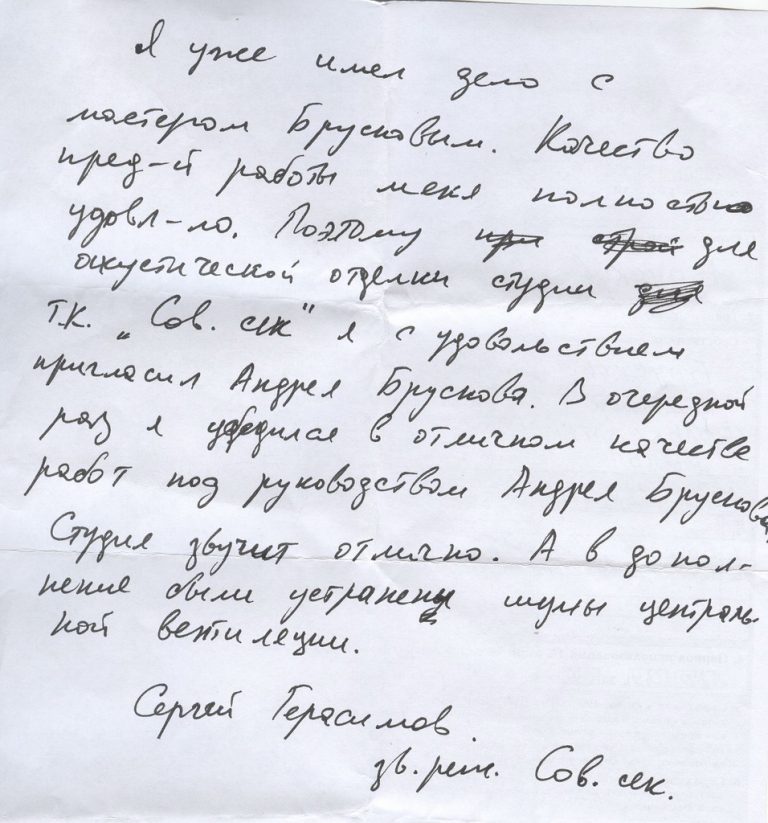 Я уже имел дело с
мастером Брусковым. Качество
пред-й работы меня полностью
удовл-ло. Поэтому при строй для
акустической отделки студии для
т.к. „Сов. сек" я с удовольствием
пригласил Андрея Брускова. В очередной
раз я убедился в отличном качестве
работ под руководством Андрея Брускова.
Студия звучит отлично. А в допол-
нение были устранены шумы централь-
ной вентиляции.
Сергей Герасимов.
зв. реж. Сов. сек.